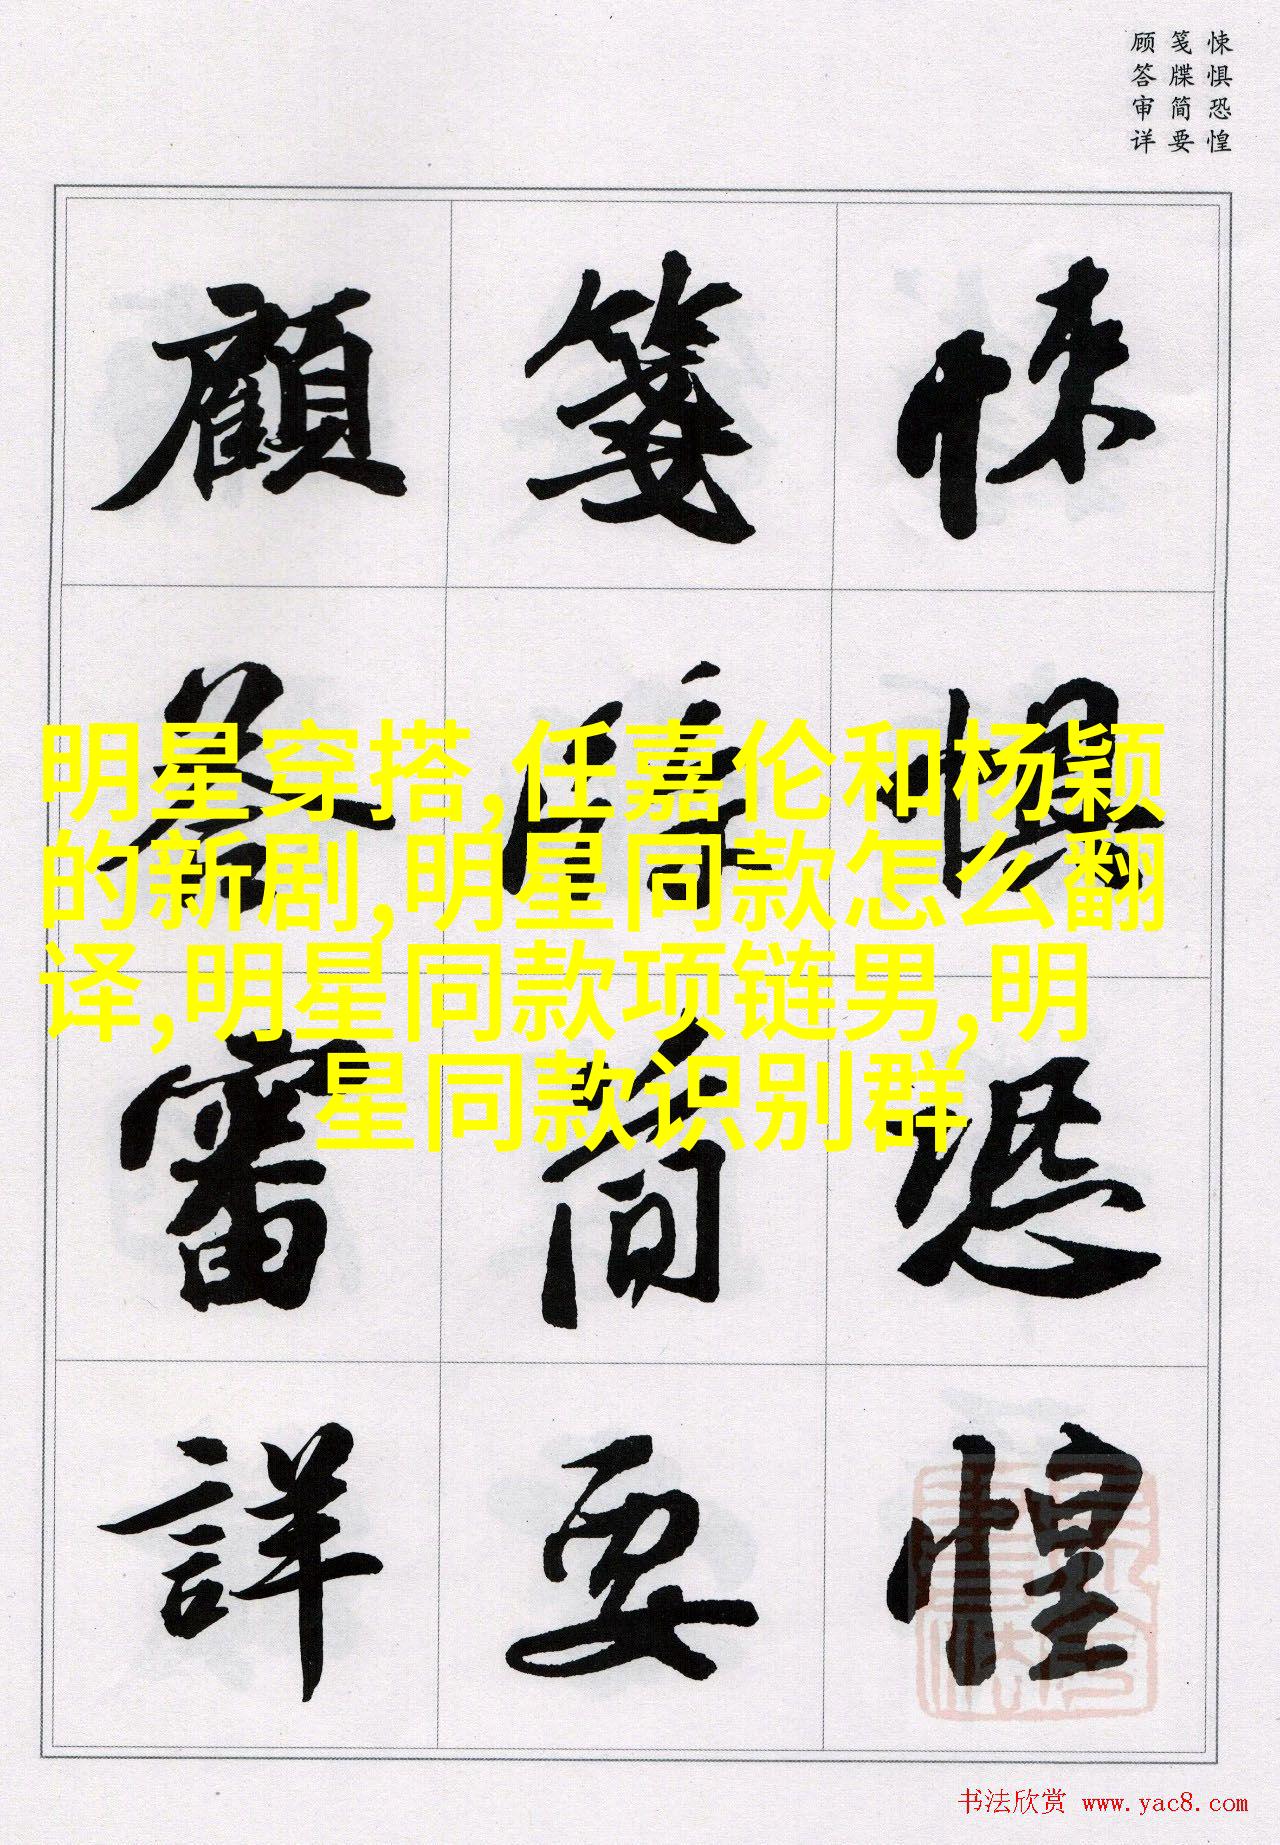 悚惧恐惶
笺牒简要
顾答审详
悚惧恐惶
笺牒簡要
顧答審詳
明星穿搭,任嘉伦和杨颖
的新剧,明星同款怎么翻
译,明星同款项链男,明
星同款识别群
书法欣赏 www.yac8.com